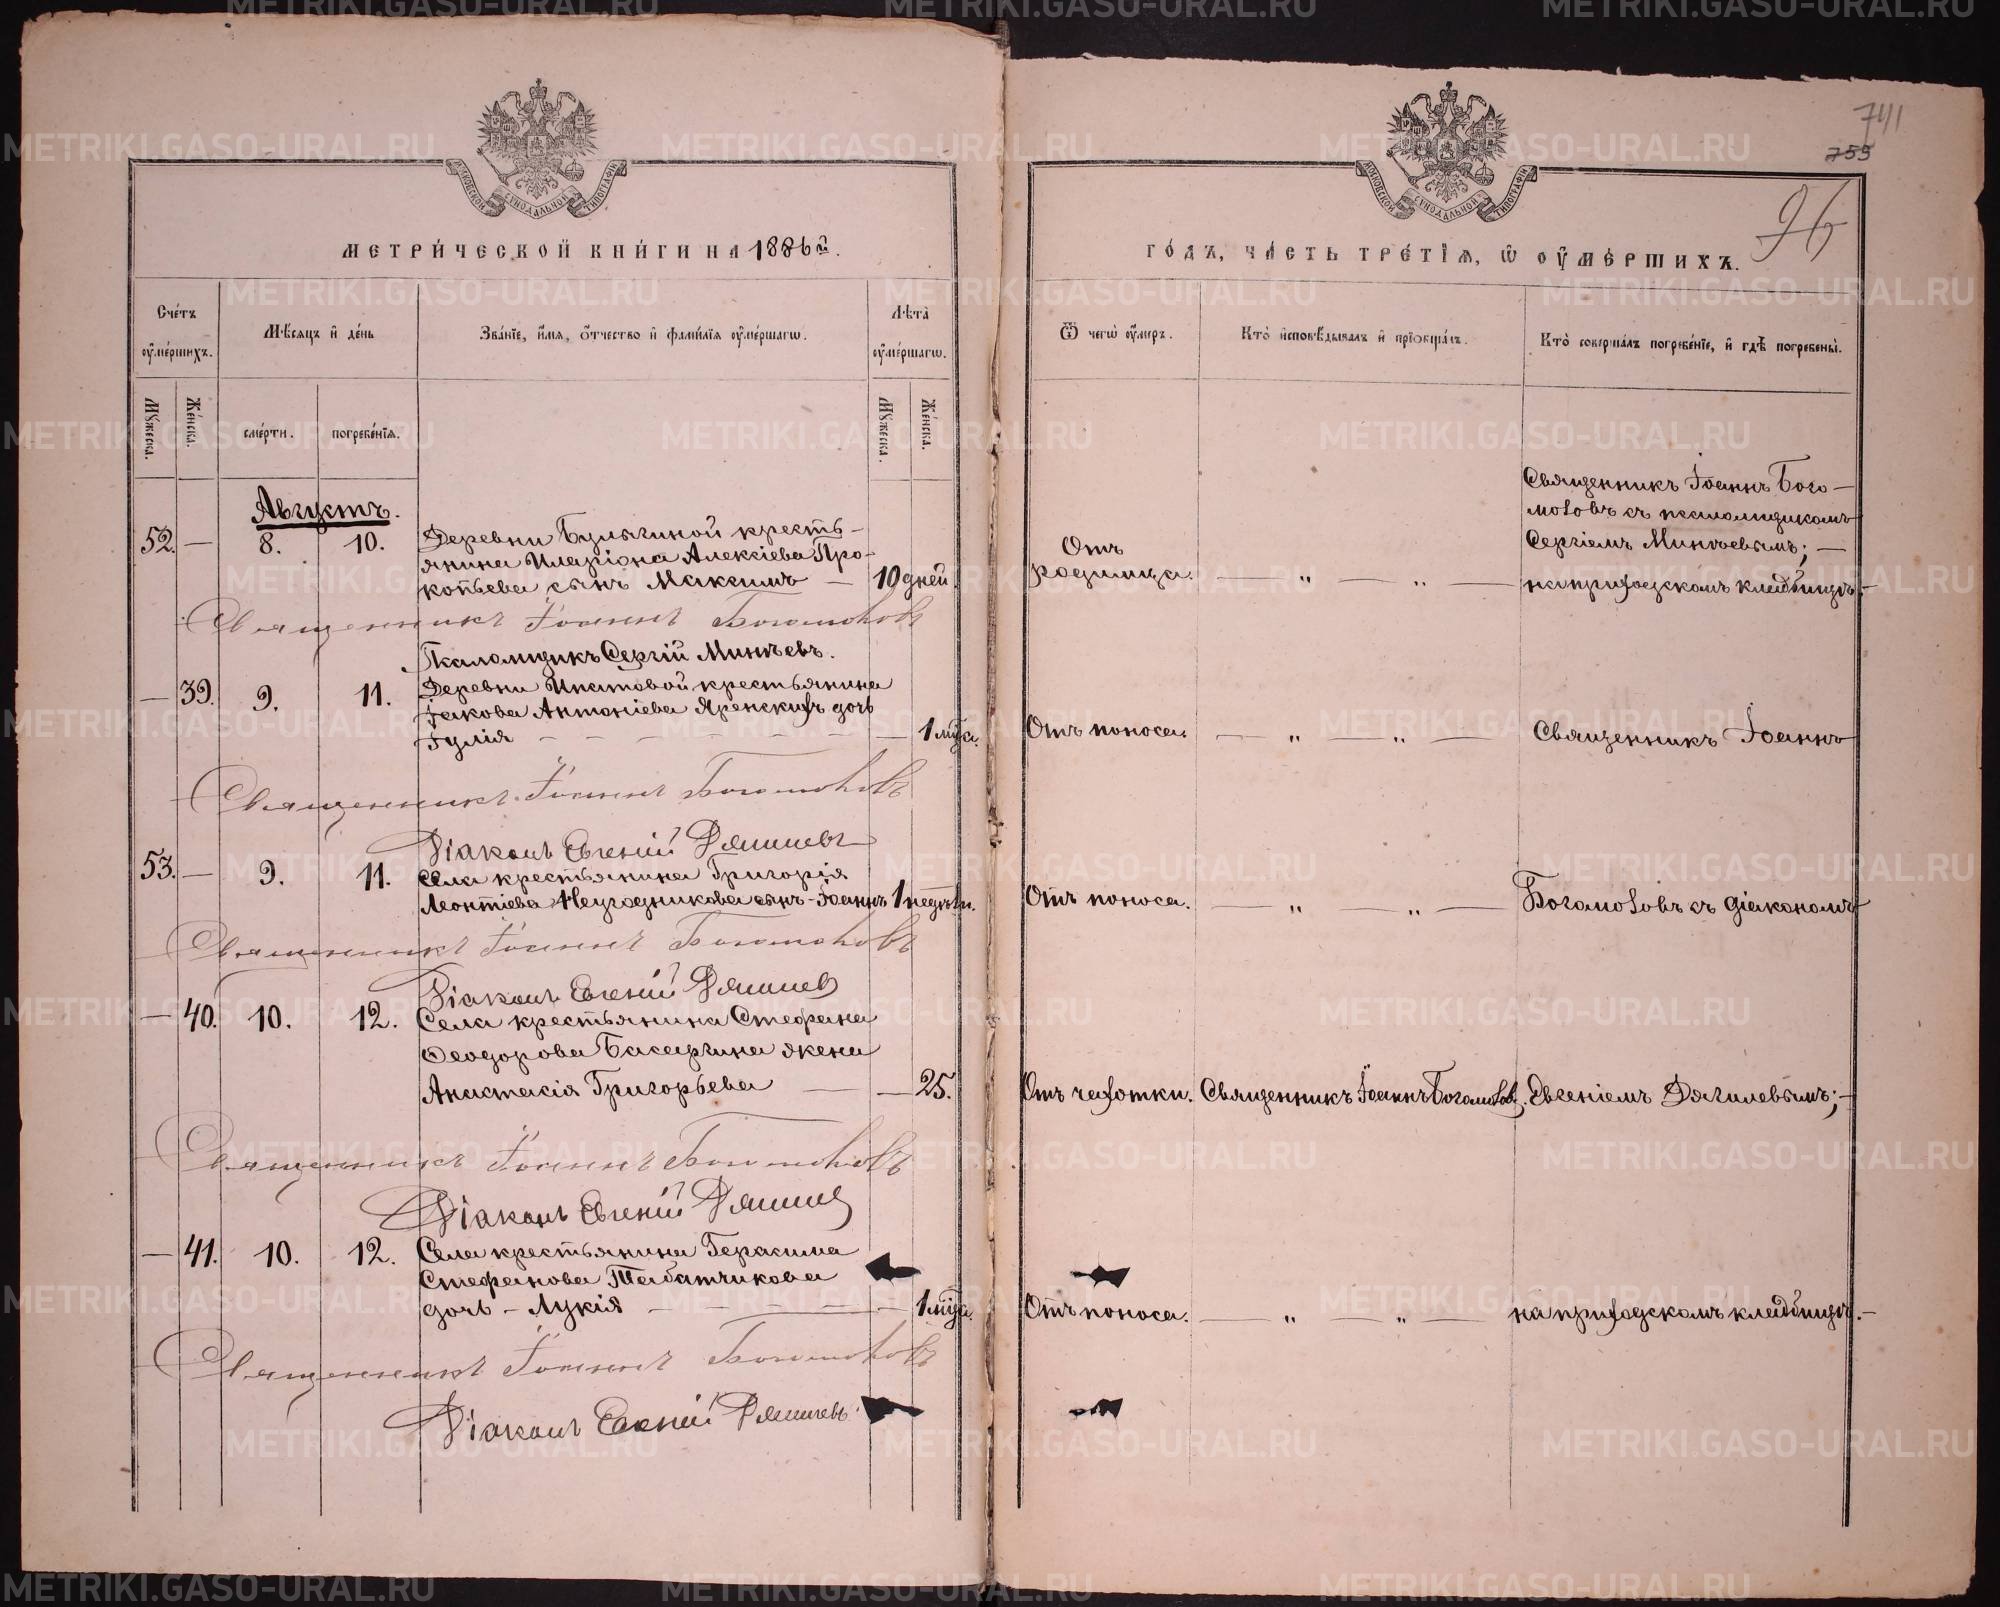 741
755
96
МОСКОВСКОЙ СѴНОДАЛЬНОЙ ТИПОГРАФІИ
МЕТРИЧЕСКОЙ КНИГИ НА 1886й.
Счетъ оумершихъ.
Мѣсяцъ и день
Званіе, имя, отчество и фамилія оумершагѡ.
Лѣта оумершагѡ.
Мужеска.
Женска.
смерти.
погребенія.
Мужеска.
Женска.
Августъ.
52. — 8. 10. Деревни Булычиной кресть-
янина Иларіона Алексіева Про-
копьева сынъ Максимъ — 10 дней.
Священникъ Іоаннъ Богомоловъ
Псаломщикъ Сергій Минѣевъ.
— 39. 9. 11. Деревни Ипатовой крестьянина
Іакова Антоніева Яренскихъ дочь
Іулія — — 1 мѣс.
Священникъ Іоаннъ Богомоловъ
Діаконъ Евгеній Дягилевъ
53. — 9. 11. Села крестьянина Григорія
Леонтіева Негодникова сынъ - Іоаннъ 1 недѣли.
Священникъ Іоаннъ Богомоловъ
Діаконъ Евгеній Дягилев
— 40. 10. 12. Села крестьянина Стефана
Ѳеодорова Басаргина жена
Анастасія Григорьева — — 25.
Священникъ Іоаннъ Богомоловъ
Діаконъ Евгеній Дягилев
— 41. 10. 12. Села крестьянина Герасима
Стефанова Табатчикова
дочь - Лукія — — 1 мѣс.
Священникъ Іоаннъ Богомоловъ
Діаконъ Евгеній Дягилевъ
МОСКОВСКОЙ СѴНОДАЛЬНОЙ ТИПОГРАФІИ
ГОДЪ, ЧАСТЬ ТРЕТІЯ, Ѡ ОУМЕРШИХЪ.
Ѿ чегѡ оумеръ.
Кто исповѣдывалъ и пріобщалъ.
Кто совершалъ погребеніе, и гдѣ погребены.
Отъ
родимца. — „ — „ —
Священникъ Іоаннъ Бого-
моловъ съ псаломщикомъ
Сергіемъ Минѣевымъ; —
на приходскомъ кладбищѣ. —
Отъ поноса. — „ — „ — Священникъ Іоаннъ
Отъ поноса. — „ — „ — Богомоловъ съ діакономъ
Отъ чахотки. Священникъ Іоаннъ Богомоловъ. Евгеніемъ Дягилевымъ; —
Отъ поноса. — „ — „ — на приходскомъ кладбищѣ. —
METRIKI.GASO-URAL.RU